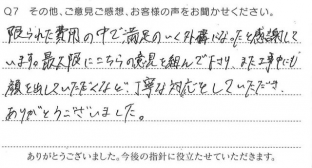 Q7 その他、ご意見ご感想、お客様の声をお聞かせください。
限られた費用の中で満足のいく外構になったと感謝して
います。最大限にこちらの意見を組んで下さり、また工事中も
顔を出していただくなど、丁寧な対応をしていただき
ありがとうございました。
ありがとうございました。今後の指針に役立たせていただきます。